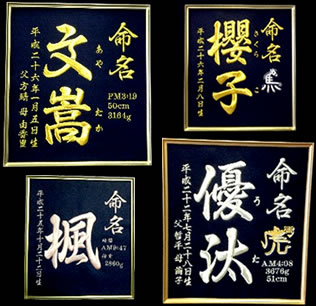 命名
文嵩
あやたか
平成二十六年一月五日生
PM3:19
50cm
3164g
命名
櫻子
さくらこ
平成二十六年二月八日生
命名
楓
平成二十五年十月二十二日生
AM9:47
2860g
命名
優汰
うた
平成二十二年七月二十八日生
AM4:08
3676g
51cm